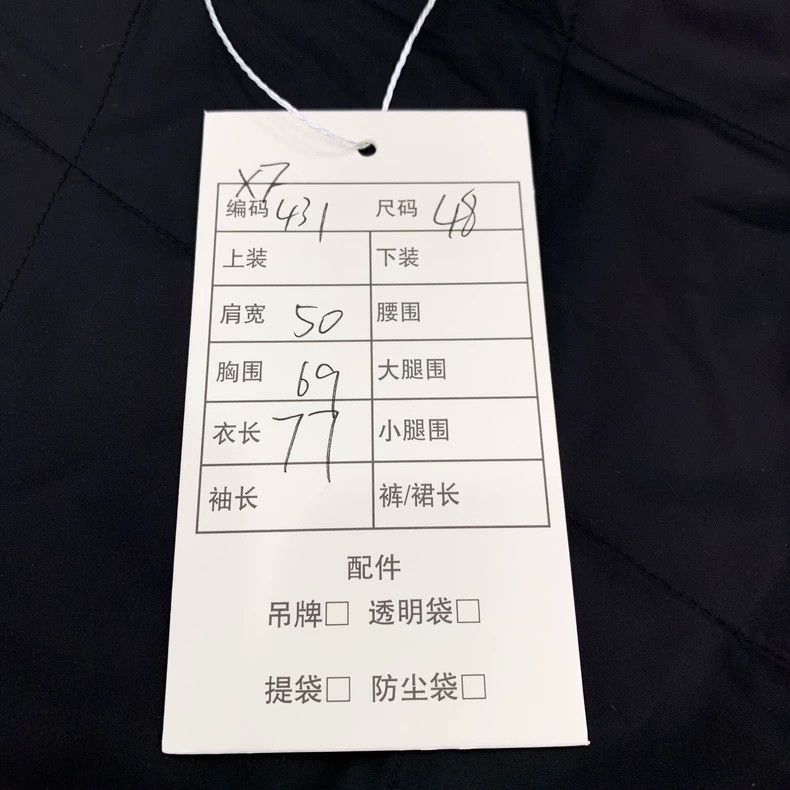 X7
编码 431 尺码 48
上装 下装
肩宽 50 腰围
胸围 69 大腿围
衣长 77 小腿围
袖长 裤/裙长
配件
吊牌□ 透明袋□
提袋□ 防尘袋□